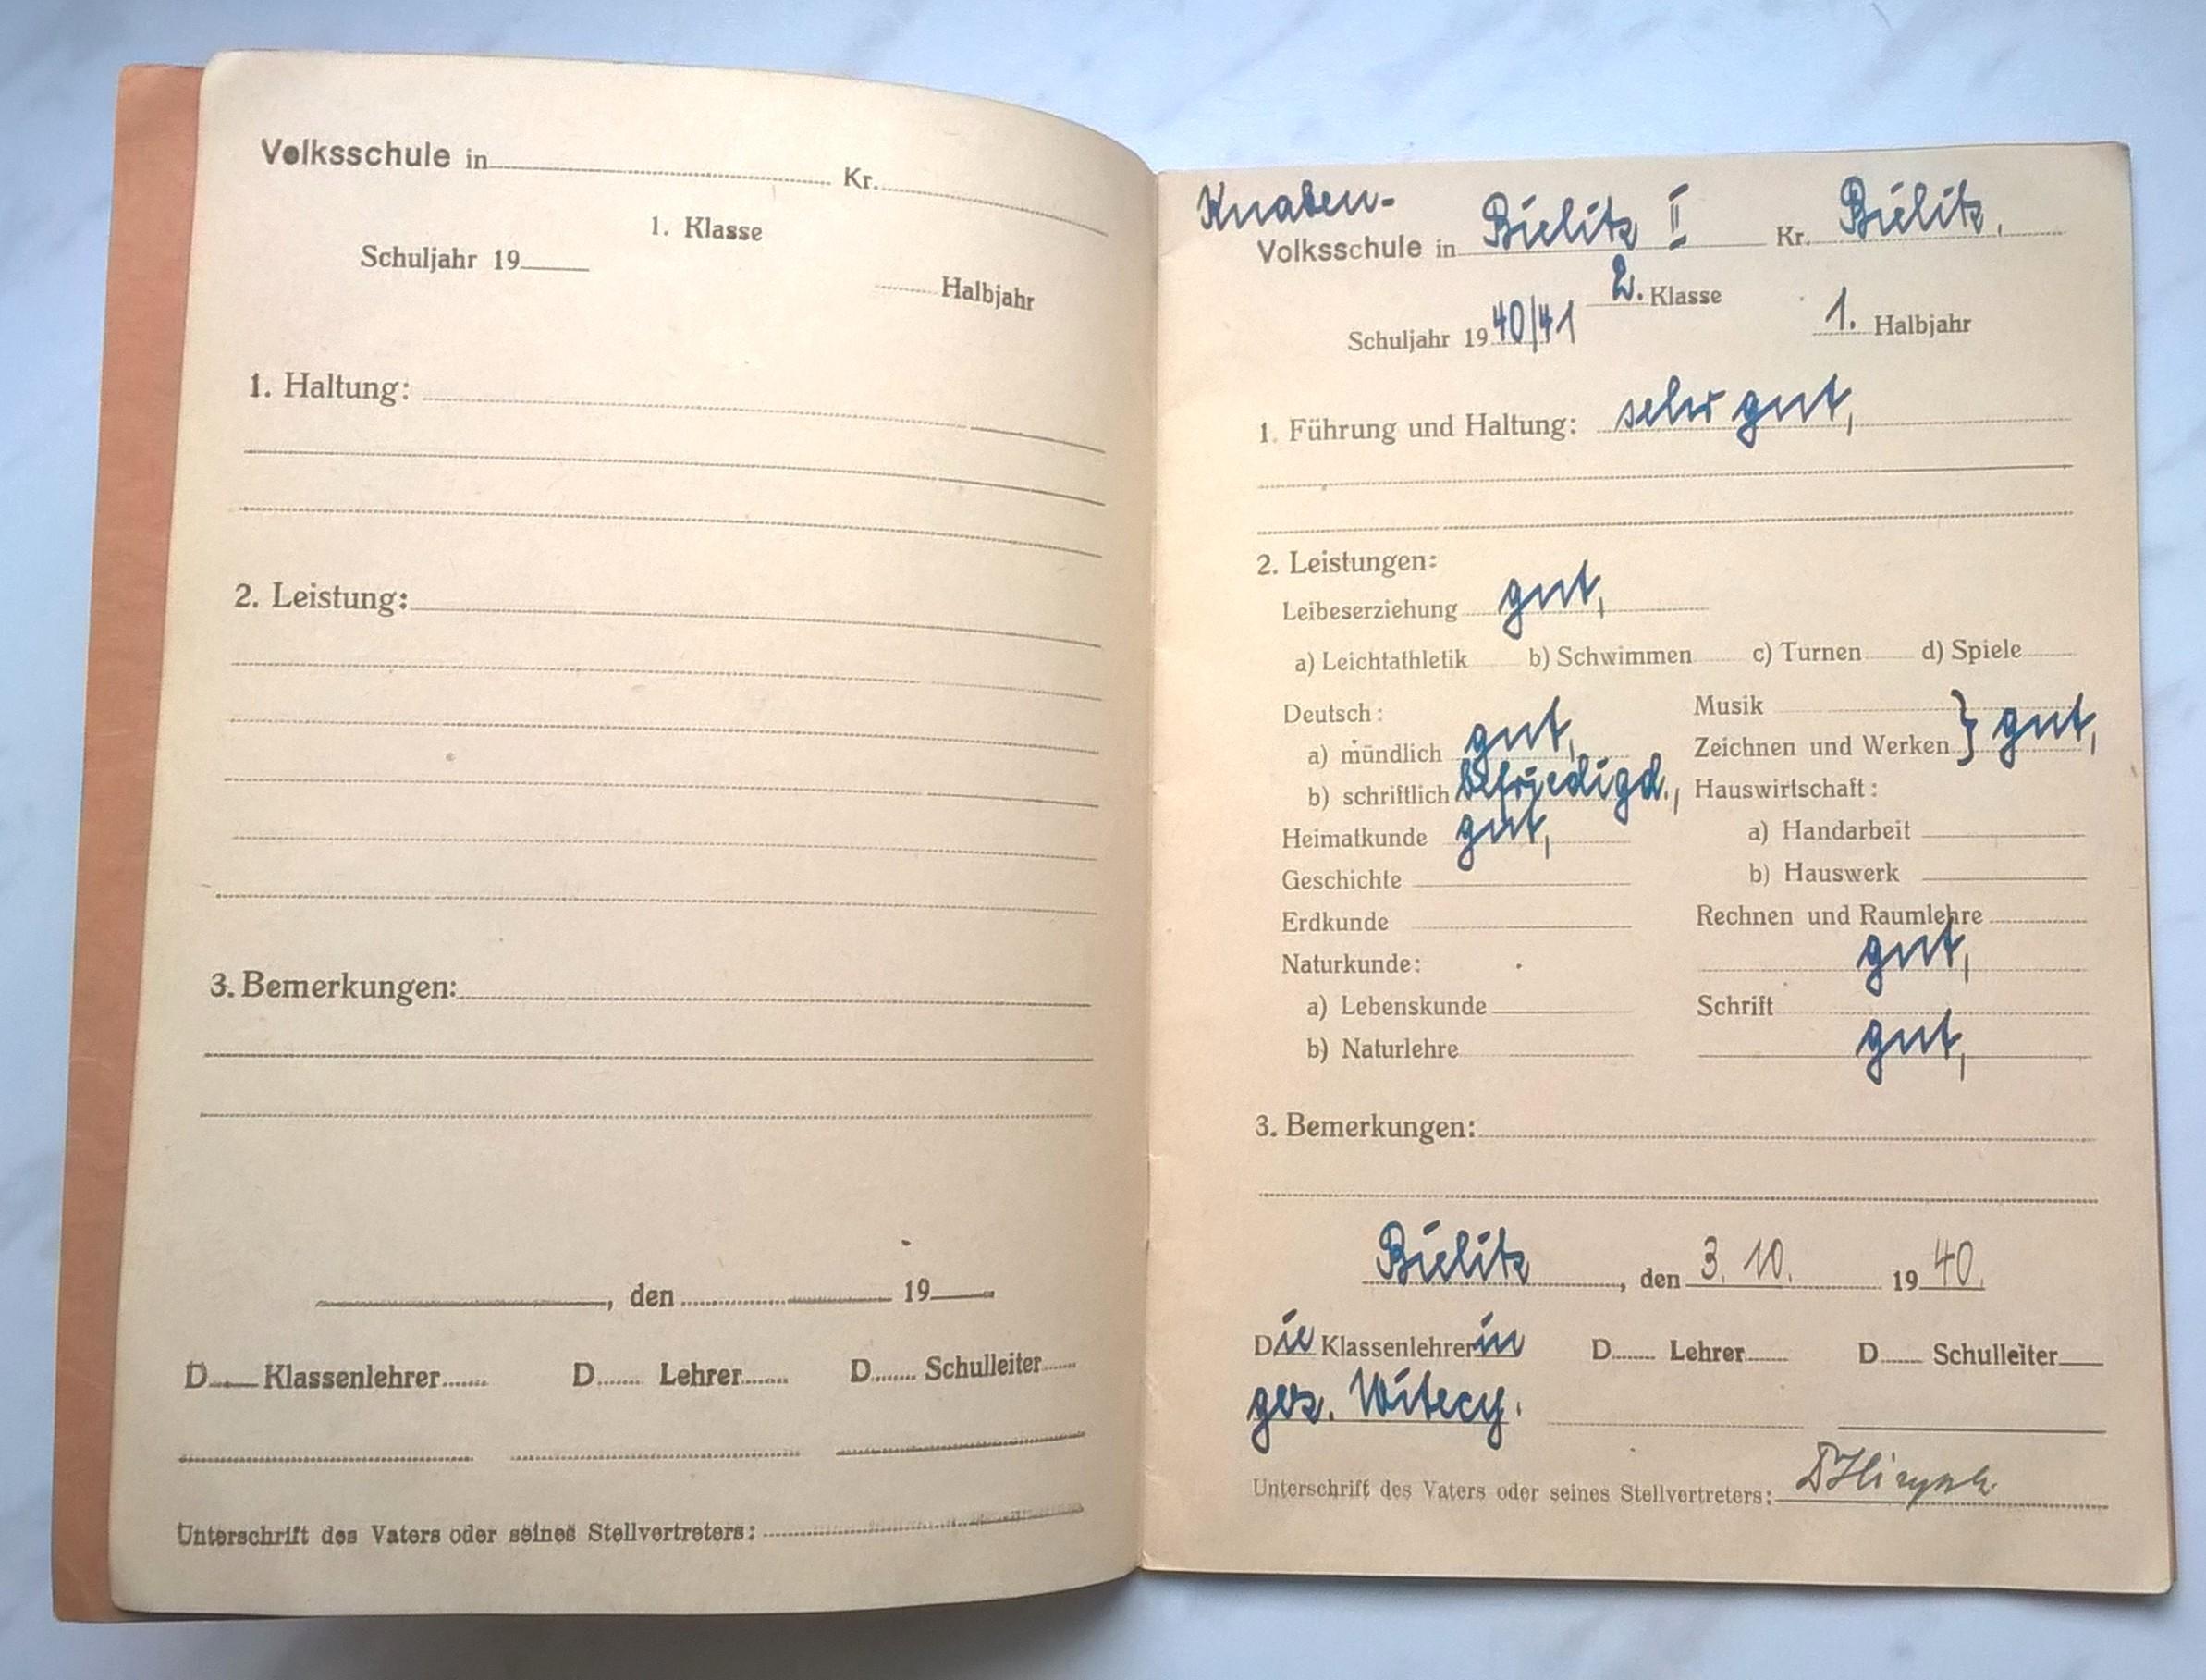 Volksschule in Kr.
1. Klasse
Schuljahr 19
Halbjahr
1. Haltung:
2. Leistung:
3. Bemerkungen:
, den 19
D Klassenlehrer D Lehrer D Schulleiter
Unterschrift des Vaters oder seines Stellvertreters:
Knaben-
Volksschule in Bielitz II Kr. Bielitz,
2. Klasse
Schuljahr 1940/41 1. Halbjahr
1. Führung und Haltung: sehr gut,
2. Leistungen:
Leibeserziehung gut,
a) Leichtathletik b) Schwimmen c) Turnen d) Spiele
Deutsch: Musik
a) mündlich gut, Zeichnen und Werken } gut,
b) schriftlich befriedigd., Hauswirtschaft:
Heimatkunde gut, a) Handarbeit
Geschichte b) Hauswerk
Erdkunde Rechnen und Raumlehre
Naturkunde: gut,
a) Lebenskunde Schrift
b) Naturlehre gut,
3. Bemerkungen:
Bielitz, den 3. 10. 1940.
Die Klassenlehrerin D Lehrer D Schulleiter
gez. Witecy.
Unterschrift des Vaters oder seines Stellvertreters: